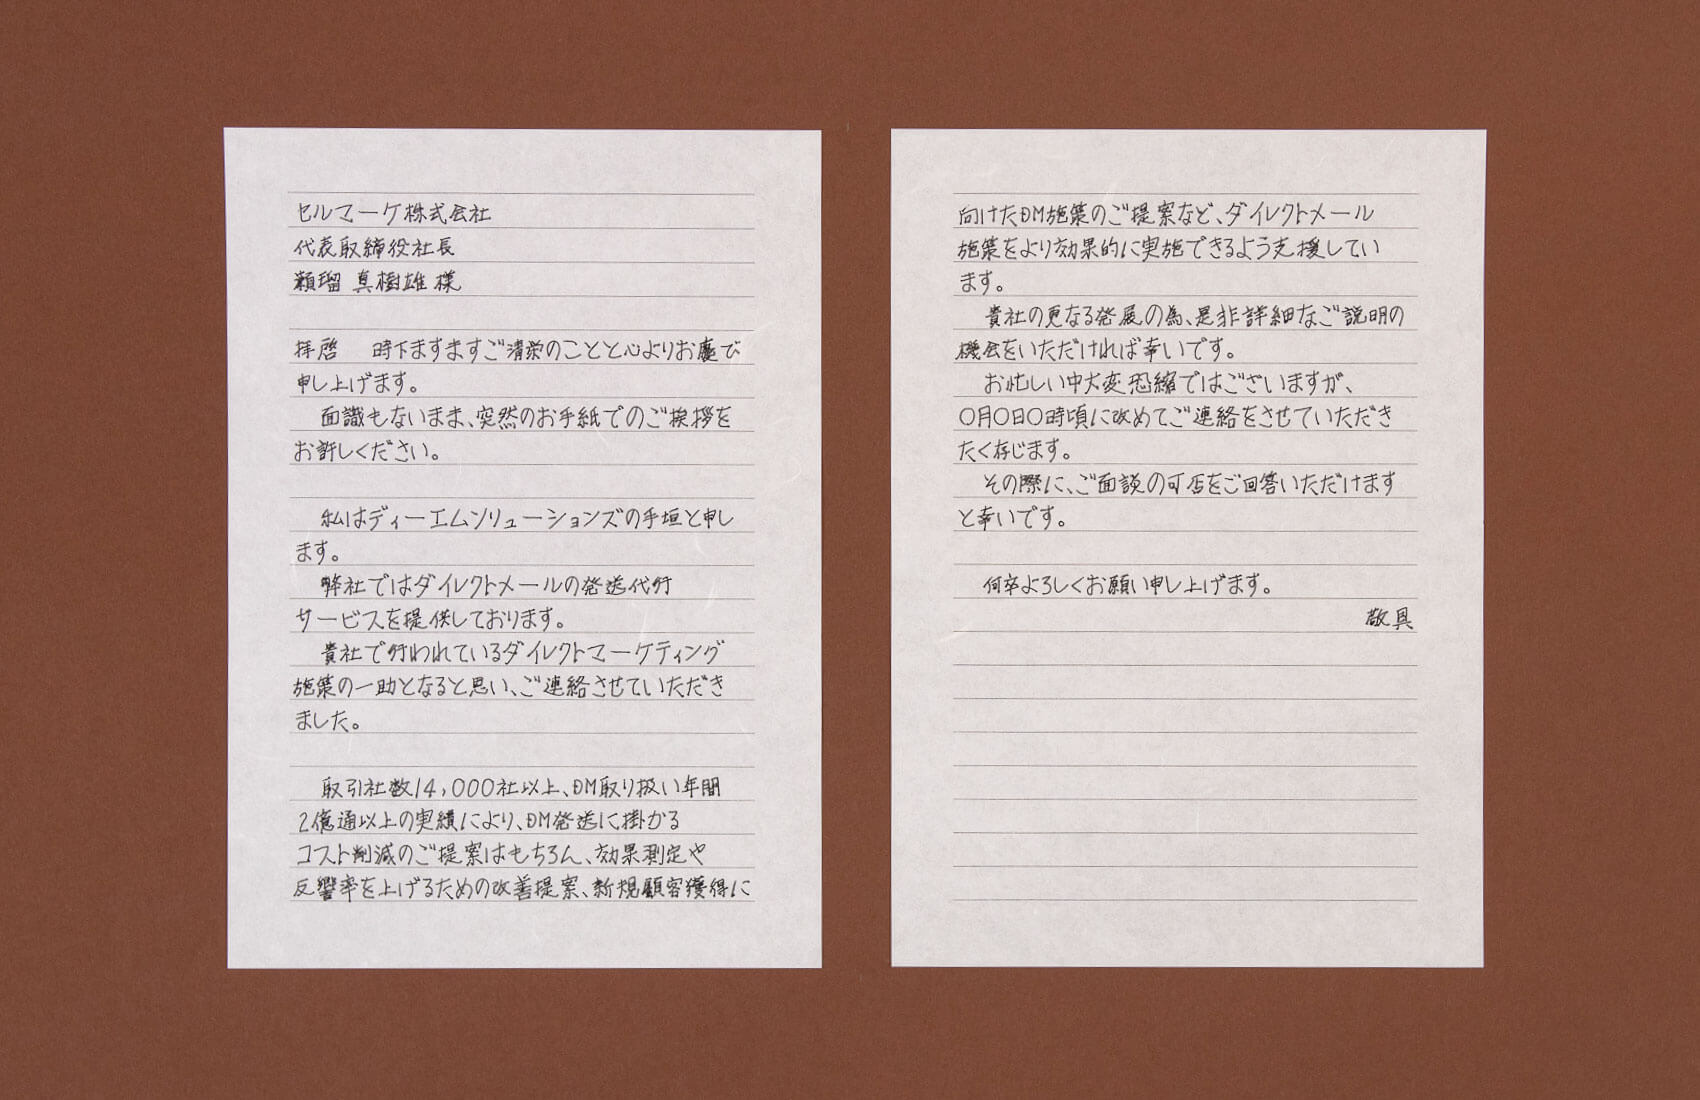 セルマーケ株式会社
代表取締役社長
瀬瑠 真樹雄 様
拝啓　時下ますますご清栄のことと心よりお慶び
申し上げます。
面識もないまま、突然のお手紙でのご挨拶を
お許しください。
私はディーエムソリューションズの手垣と申し
ます。
弊社ではダイレクトメールの発送代行
サービスを提供しております。
貴社で行われているダイレクトマーケティング
施策の一助となると思い、ご連絡させていただき
ました。
取引社数14,000社以上、DM取り扱い年間
2億通以上の実績により、DM発送に掛かる
コスト削減のご提案はもちろん、効果測定や
反響率を上げるための改善提案、新規顧客獲得に
向けたDM施策のご提案など、ダイレクトメール
施策をより効果的に実施できるよう支援してい
ます。
貴社の更なる発展の為、是非詳細なご説明の
機会をいただければ幸いです。
お忙しい中大変恐縮ではございますが、
〇月〇日〇時頃に改めてご連絡をさせていただき
たく存じます。
その際に、ご面談の可否をご回答いただけます
と幸いです。
何卒よろしくお願い申し上げます。
敬具